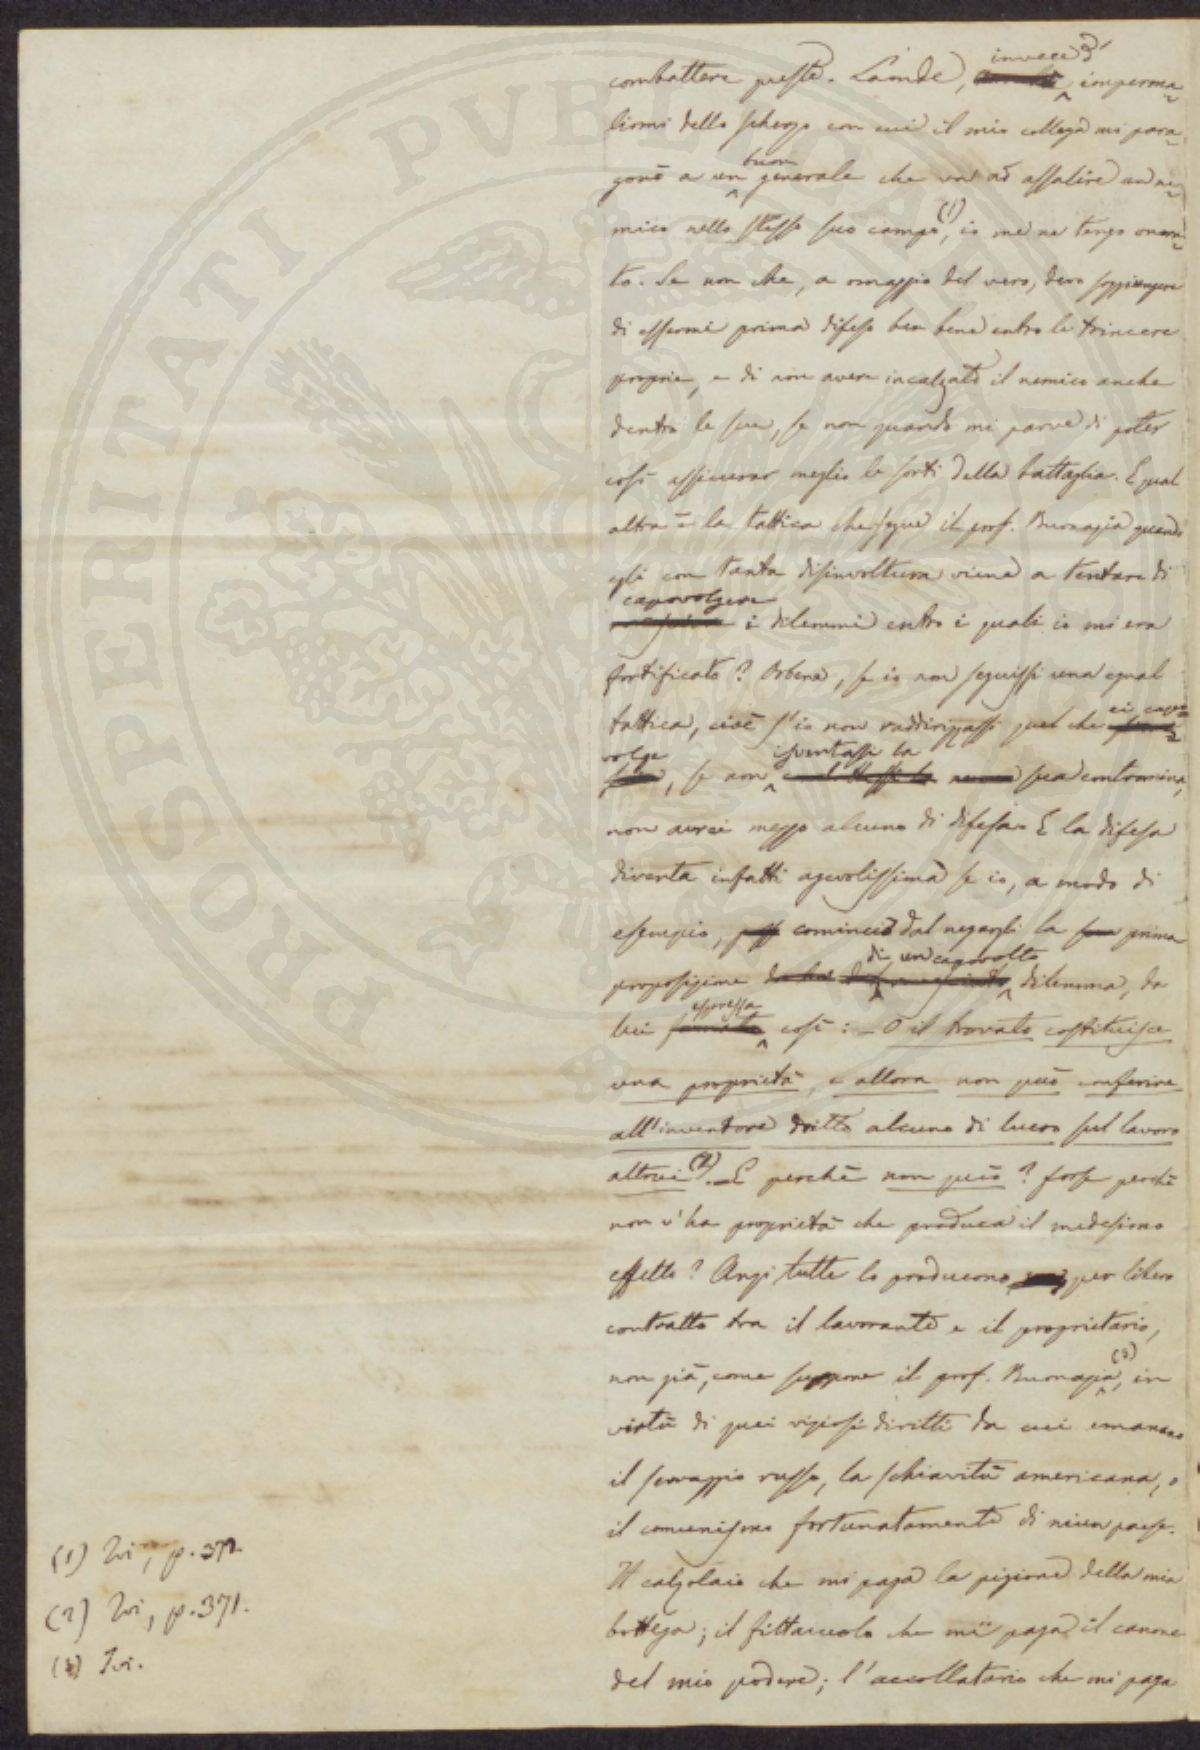 combattere queste. Laonde, invece d' imperma-
lirmi dello scherzo con cui il mio collega mi para-
gonò a un buon generale che va ad assalire un ne-
mico nello stesso suo campo (1), io me ne tengo onora-
to. Se non che, a omaggio del vero, devo soggiungere
di essermi prima difeso ben bene entro le trincere
proprie, e di non avere incalzato il nemico anche
dentro le sue, se non quando mi parve di poter
così assicurar meglio le sorti della battaglia. E qual
altra è la tattica che segue il prof. Buonazia quando
egli con tanta disinvoltura viene a tentare di
capovolgere i dilemmi entro i quali io mi era
fortificato? Orbene, se io non seguissi una egual
tattica, cioè s'io non raddirizzassi quel che ei capo-
volge, se non isventassi la sua contromina,
non avrei mezzo alcuno di difesa. E la difesa
diventa infatti agevolissima se io, a modo di
esempio, comincio dal negargli la prima
proposizione di un capovolto dilemma, da
lui espressa così: — O il trovato costituisce
una proprietà, e allora non può conferire
all'inventore dritto alcuno di lucro sul lavoro
altrui (2). — E perchè non può? forse perchè
non v'ha proprietà che produca il medesimo
effetto? Anzi tutte lo producono per libero
contratto tra il lavorante e il proprietario,
non già, come suppone il prof. Buonazia (3), in
virtù di quei viziosi diritti da cui emanano
il servaggio russo, la schiavitù americana, o
il comunismo fortunatamente di niun paese.
Il calzolaio che mi paga la pigione della mia
bottega; il fittaiuolo che mi paga il canone
del mio podere; l'accollatario che mi paga
(1) Ivi, p. 372.
(2) Ivi, p. 371.
(3) Ivi.
PROSPERITATI PVBLICAE